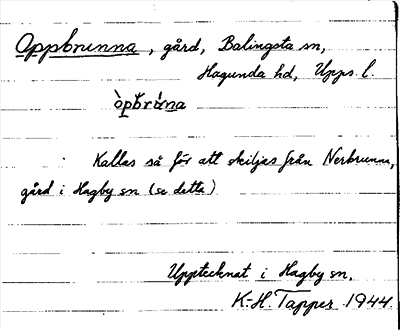 Oppbrunna, gård, Balingsta sn,
Hagunda hd, Upps. l.
Kallas så för att skiljas från Nerbrunna,
gård i Hagby sn (se detta)
Upptecknat i Hagby sn,
K.-H. Tapper 1944